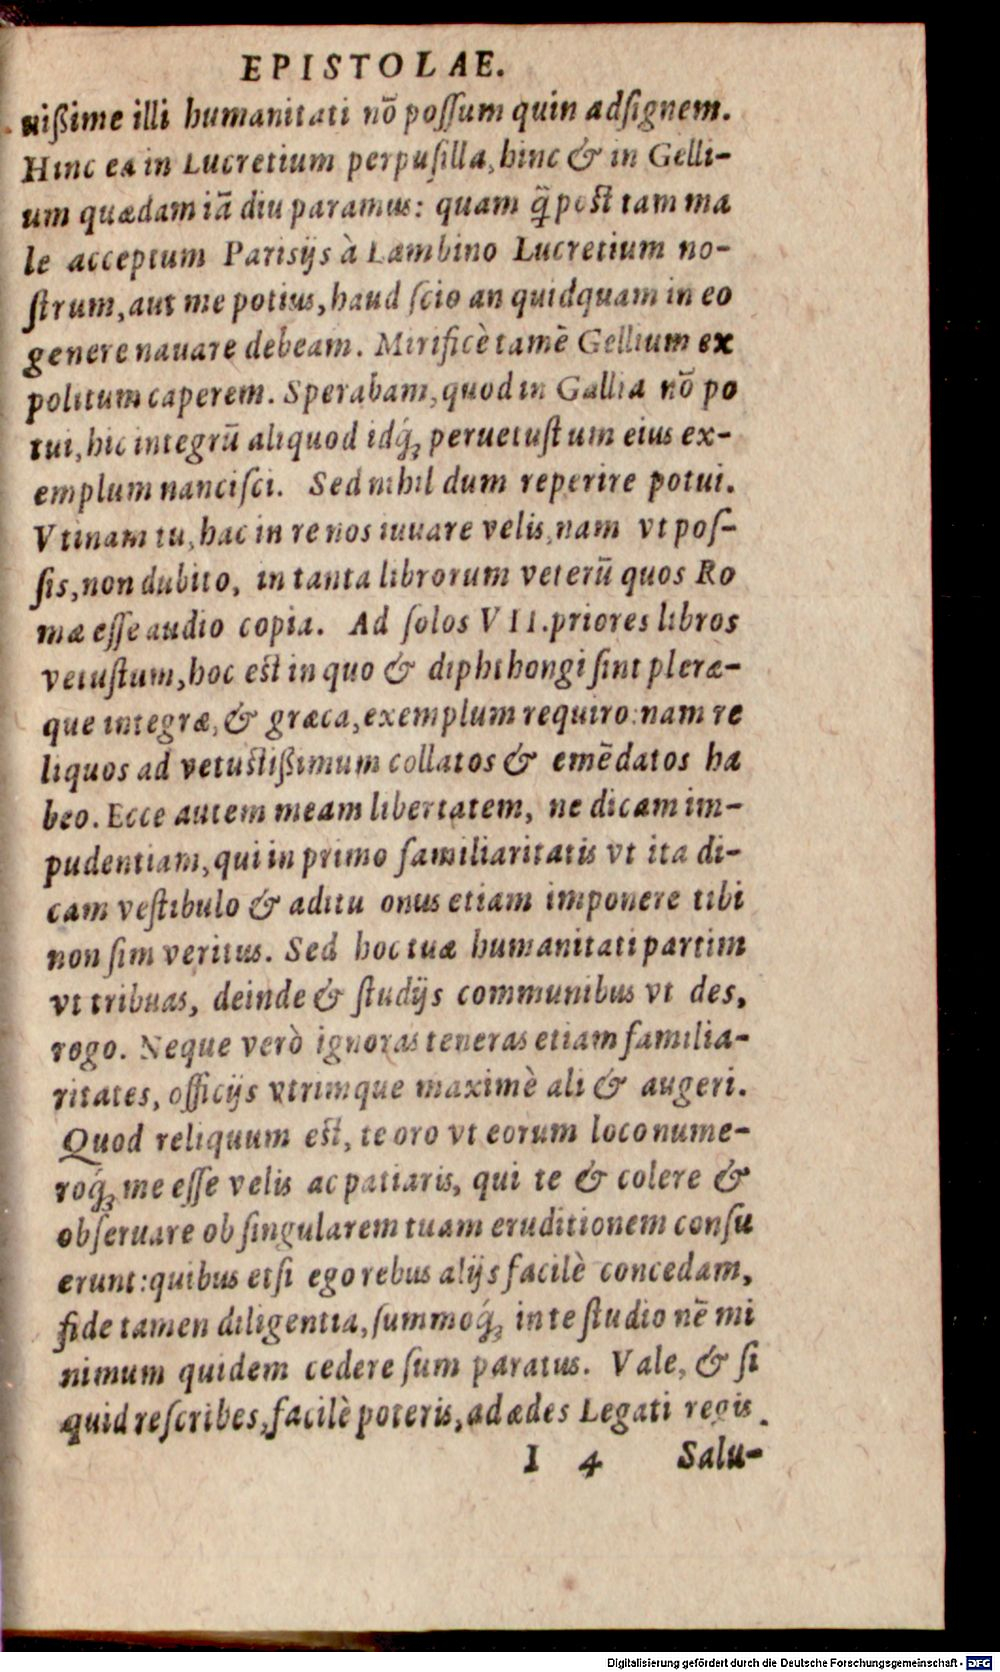 EPISTOLAE.
nißime illi humanitati nō poſſum quin adſignem.
Hinc ea in Lucretium perpuſilla, hinc & in Gelli-
um quædam iā diu paramus: quam q̃ post tam ma
le acceptum Parisijs à Lambino Lucretium no-
ſtrum, aut me potius, haud ſcio an quidquam in eo
genere nauare debeam. Mirificè tamē Gellium ex
politum caperem. Sperabam, quod in Gallia nō po
tui, hic integrū aliquod idq́; peruetuſtum eius ex-
emplum nanciſci. Sed nihil dum reperire potui.
Vtinam tu, hac in re nos iuuare velis, nam vt poſ-
ſis, non dubito, in tanta librorum veterū quos Ro
mæ eſſe audio copia. Ad ſolos VII. priores libros
vetuſtum, hoc est in quo & diphthongi ſint pleræ-
que integræ, & græca, exemplum requiro: nam re
liquos ad vetustißimum collatos & emēdatos ha
beo. Ecce autem meam libertatem, ne dicam im-
pudentiam, qui in primo familiaritatis vt ita di-
cam veſtibulo & aditu onus etiam imponere tibi
non ſim veritus. Sed hoc tuæ humanitati partim
vt tribuas, deinde & ſtudijs communibus vt des,
rogo. Neque verò ignoras teneras etiam familia-
ritates, officijs vtrimque maximè ali & augeri.
Quod reliquum est, te oro vt eorum loco nume-
roq́; me eſſe velis ac patiaris, qui te & colere &
obſeruare ob ſingularem tuam eruditionem conſu
erunt: quibus etſi ego rebus alijs facilè concedam,
fide tamen diligentia, ſummoq́; in te ſtudio nē mi
nimum quidem cedere ſum paratus. Vale, & ſi
quid reſcribes, facilè poteris, ad ædes Legati regis.
I 4 Salu-
Digitalisierung gefördert durch die Deutsche Forschungsgemeinschaft - DFG